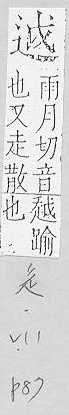 雨月切音越踰
也又走散也
辵
· VII
p87